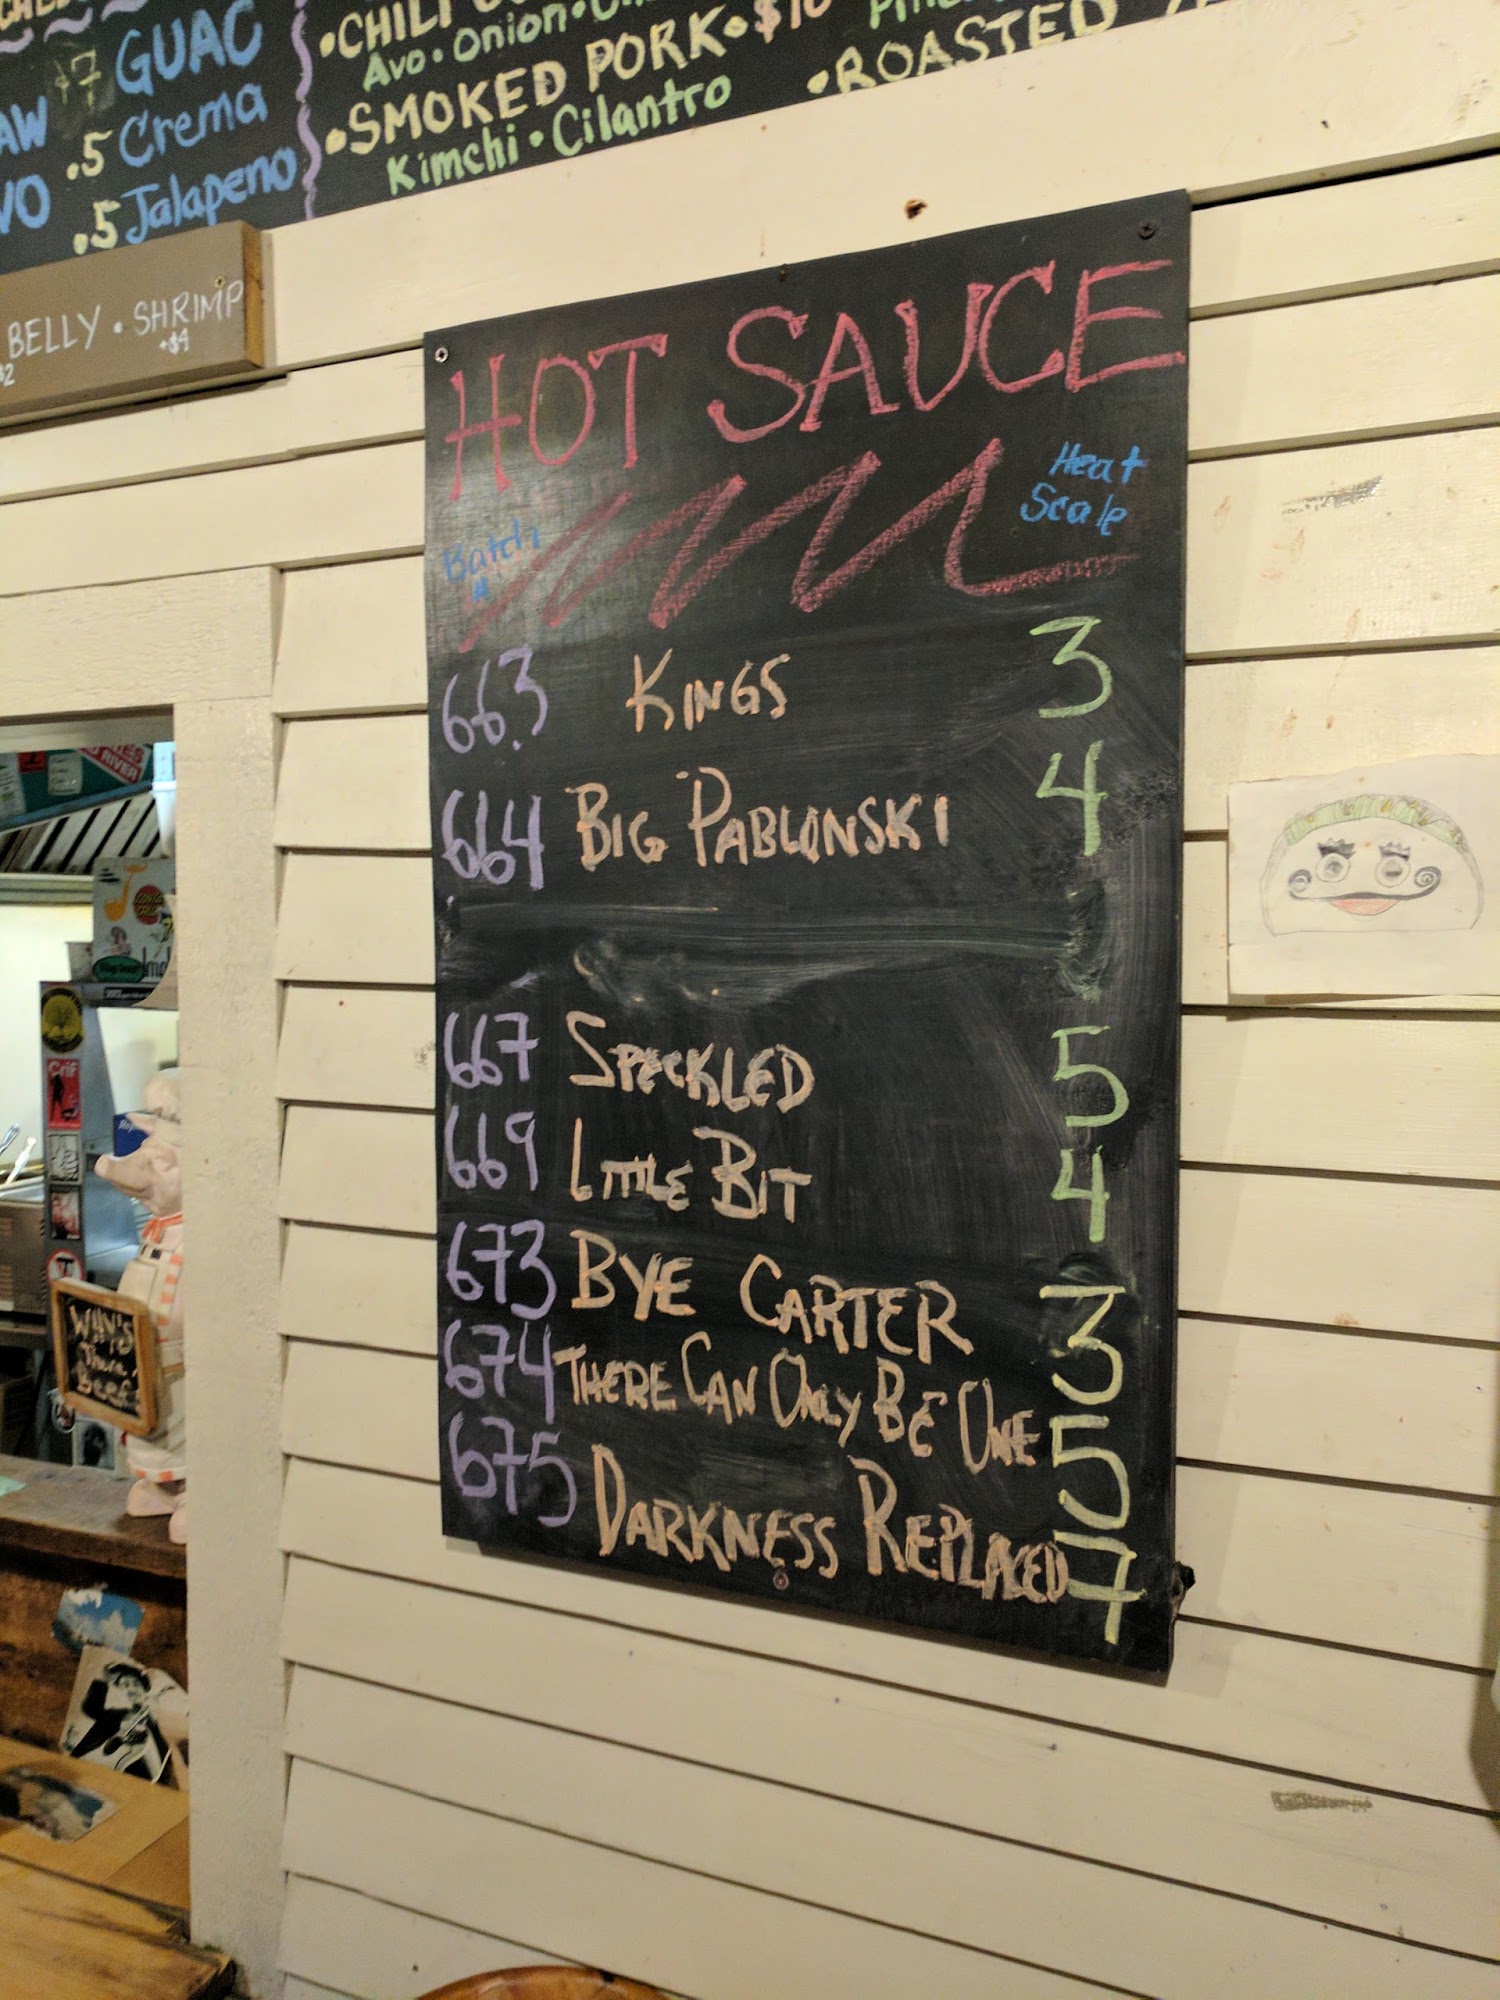 $7 GUAC
.5 Crema
.5 Jalapeno
•CHILI
Avo•Onion
•SMOKED PORK•$10
Kimchi•Cilantro
•ROASTED
BELLY • SHRIMP
•$4
HOT SAUCE
Batch Heat
# Scale
663 KINGS 3
664 BIG PABLONSKI 4
667 SPECKLED 5
669 LITTLE BIT 4
673 BYE CARTER 3
674 THERE CAN ONLY BE ONE 5
675 DARKNESS REPLACED 7
RIVER
Crif